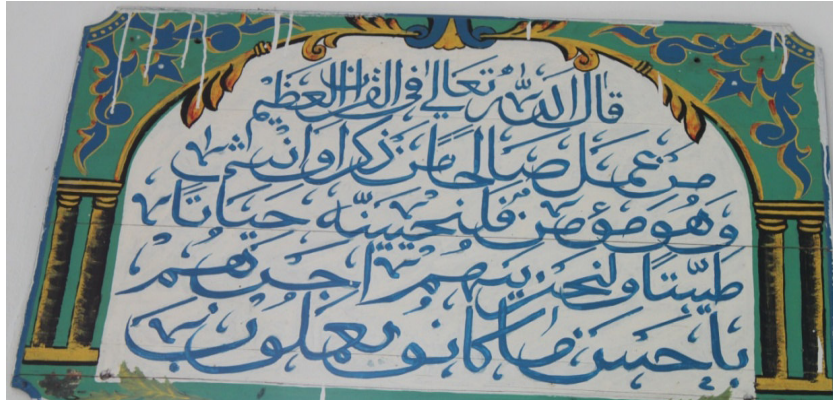 قال الله تعالى في القران العظيم
من عمل صالحا من ذكر او انثى
وهو مؤمن فلنحيينه حياتا
طيبتا ولنجزينهم اجرهم
باحسن ما كانو يعملون